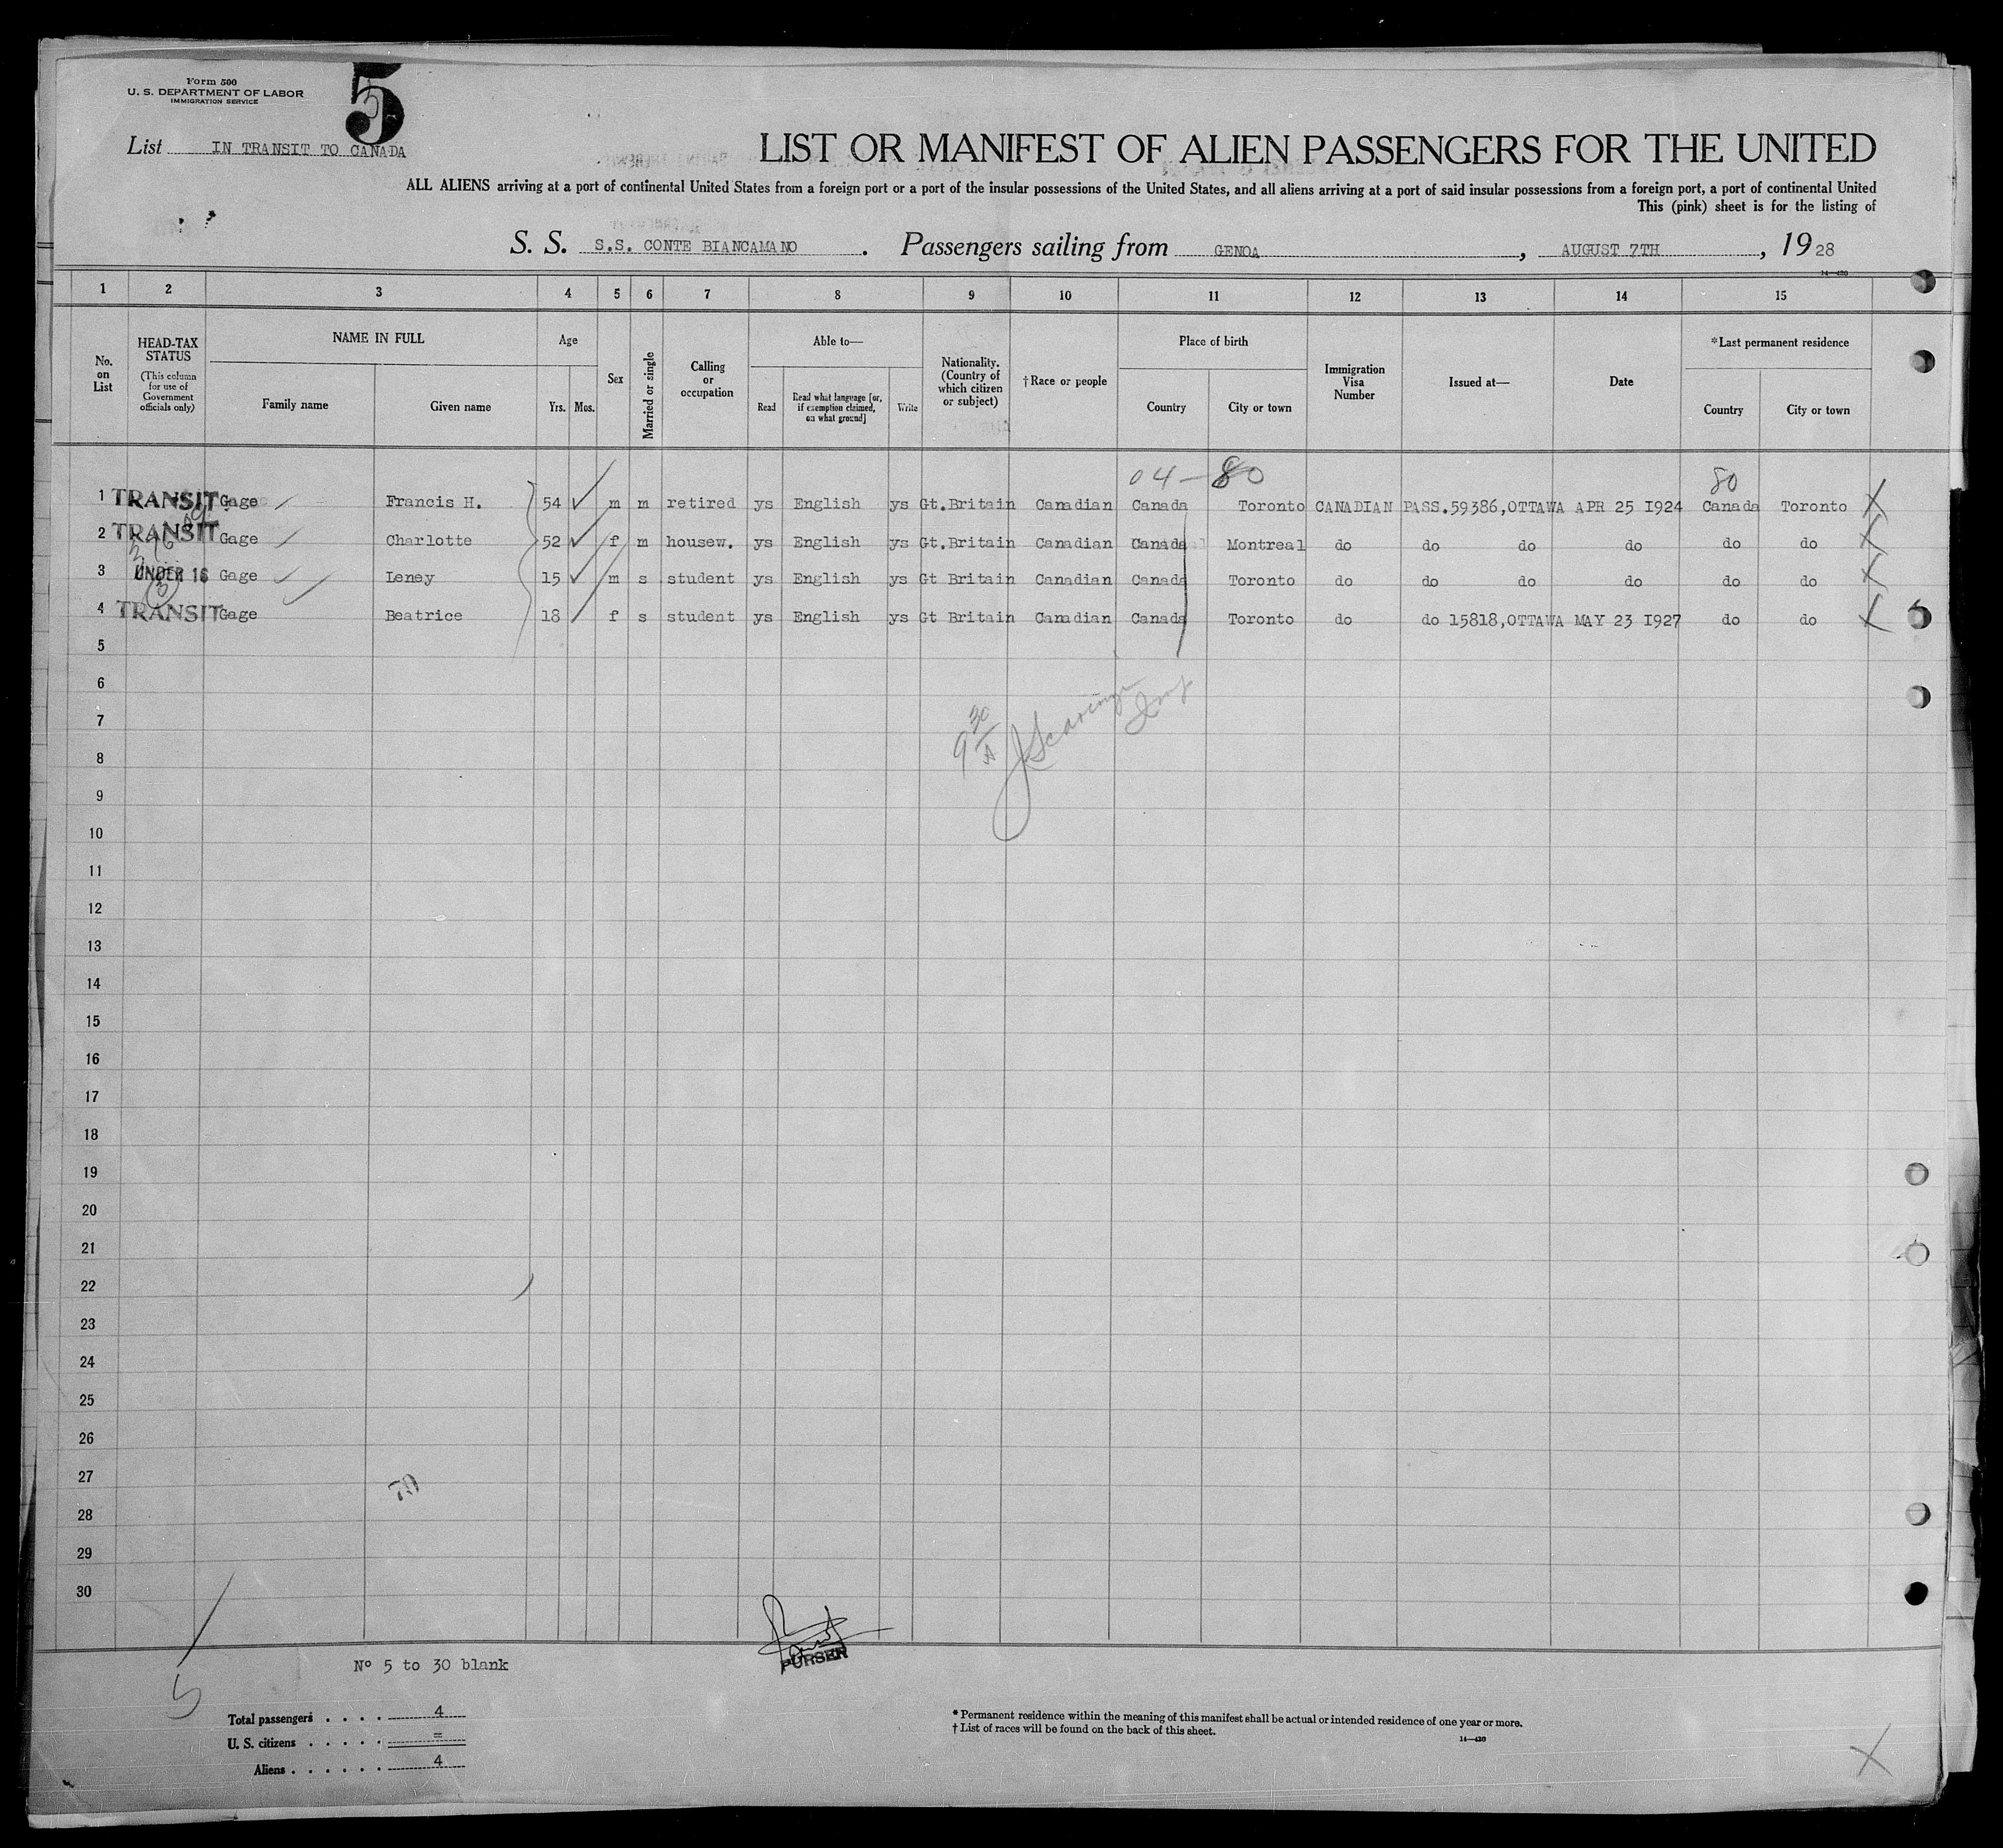 Form 500
U. S. DEPARTMENT OF LABOR
IMMIGRATION SERVICE
5
List IN TRANSIT TO CANADA
LIST OR MANIFEST OF ALIEN PASSENGERS FOR THE UNITED
ALL ALIENS arriving at a port of continental United States from a foreign port or a port of the insular possessions of the United States, and all aliens arriving at a port of said insular possessions from a foreign port, a port of continental United
This (pink) sheet is for the listing of
S. S. S.S. CONTE BIANCAMANO. Passengers sailing from GENOA, AUGUST 7TH, 1928
14—420
1 2 3 4 5 6 7 8 9 10 11 12 13 14 15
No. on List
HEAD-TAX STATUS (This column for use of Government officials only)
NAME IN FULL
Family name Given name
Age
Yrs. Mos.
Sex
Married or single
Calling or occupation
Able to—
Read
Read what language [or, if exemption claimed, on what ground]
Write
Nationality. (Country of which citizen or subject)
†Race or people
Place of birth
Country City or town
Immigration Visa Number
Issued at—
Date
*Last permanent residence
Country City or town
04—80 80
1 TRANSIT Gage Francis H. 54 m m retired ys English ys Gt.Britain Canadian Canada Toronto CANADIAN PASS.59386,OTTAWA APR 25 I924 Canada Toronto X
2 TRANSIT Gage Charlotte 52 f m housew. ys English ys Gt.Britain Canadian Canada Montreal do do do do do do X
3 UNDER 16 Gage Leney 15 m s student ys English ys Gt Britain Canadian Canada Toronto do do do do do do X
4 TRANSIT Gage Beatrice 18 f s student ys English ys Gt Britain Canadian Canada Toronto do do 15818,OTTAWA MAY 23 I927 do do X
5
6
7
8
9
10
11
12
13
14
15
16
17
18
19
20
21
22
23
24
25
26
27
70
28
29
30
PURSER
Nº 5 to 30 blank
5
Total passengers . . . . 4
U. S. citizens . . . . . =
Aliens . . . . . . 4
* Permanent residence within the meaning of this manifest shall be actual or intended residence of one year or more.
† List of races will be found on the back of this sheet.
14—420
X